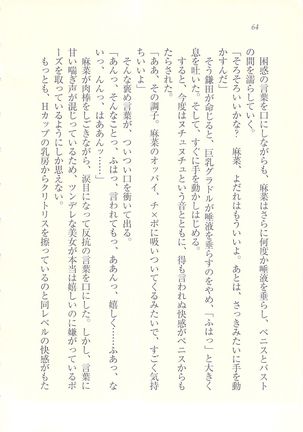 64
困惑の言葉を口にしながらも、麻菜はさらに何度か唾液を垂らし、ペニスとバスト
の間を濡らしていく。
「そろそろいいかな？　麻菜、よだれはもういいよ。あとは、さっきみたいに手を動
かすんだ」
そう鎌田が命じると、巨乳グラドルが唾液を垂らすのをやめ、「ふはっ」と大きく
息を吐いた。そして、すぐに手を動かしはじめる。
すると、今度はヌチュヌチュという音とともに、得も言われぬ快感がペニスからも
たらされた。
「ああ、その調子。麻菜のオッパイ、チ×ポに吸いついてくるみたいで、すごく気持
ちいいよ」
そんな褒め言葉が、ついつい口を衝いて出る。
「あんっ、そんなことっ、ふはっ、言われてもっ、ああんっ、嬉しく……ふあっ、な
いっ、んんっ、はああんっ……」
麻菜が肉棒をしごきながら、涙目になって反抗の言葉を口にした。しかし、言葉に
甘い喘ぎ声が混じっているため、ツンデレな美女が本当は嬉しいのに嫌がっているポ
ーズを取っているようにしか思えない。
もっとも、Hカップの乳房からクリトリスを擦っているのと同レベルの快感がもた